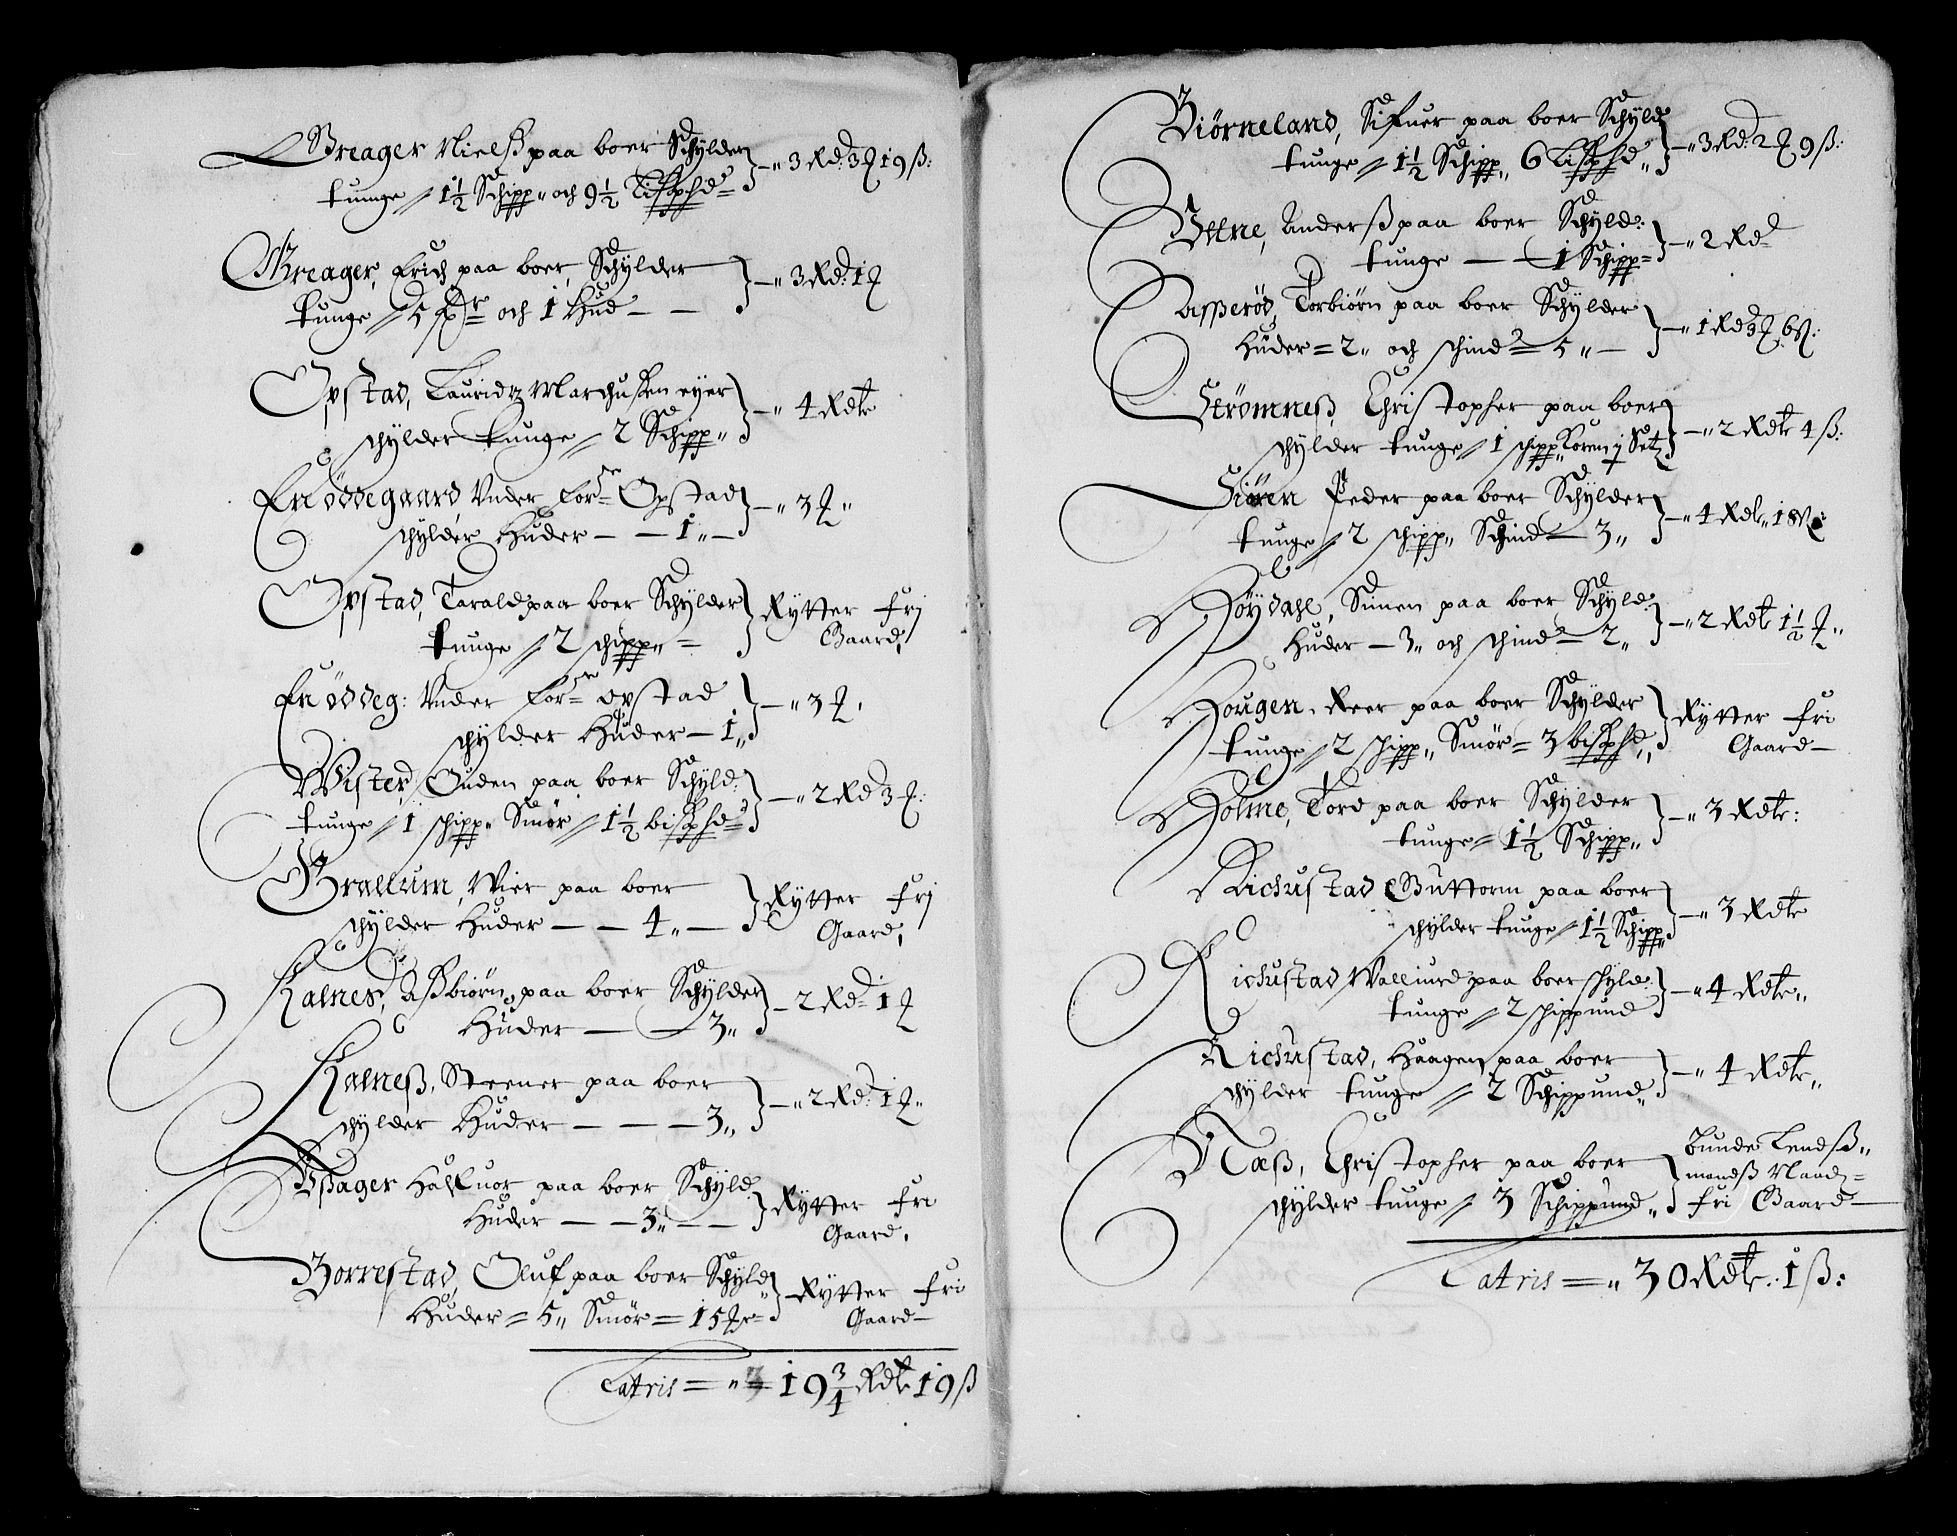 Greager Nielß paa boer Schylder
tunge 1½ Schipp och 9½ Lispd } — 3 Rd: 3 ₰ 19 ß:
Greager, Erich paa boer, Schylder
tunge 5 och 1 Hud — — } — 3 Rd: 1
Opstad, Lauridtz Marchußen eyer
schylder tunge 2 Schipp } — 4 Rdlr
En öddegaard Vnder for^ne Opstad
schylder Huder — — 1 — } — 3
Opstad, Tarald paa boer Schylder
tunge 2 schipp } Rytter frj
Gaard
En öddeg: Vnder for^ne opstad
schylder Huder — 1 } — 3
Wister, Ouden paa boer Schyld:
tunge 1 schipp Smör 1½ bispd } — 2 Rd 3
Grallum, Wier paa boer
schylder Huder — — 4 — } Rytter frj
Gaard
Kalnes, Aßbiörn paa boer Schylder
Huder — 3 } — 2 Rd 1
Kalneß, Steener paa boer
schylder Huder — — — 3 } — 2 Rd: 1
Haluor paa boer Schyld
Huder — — 3 — — } Rytter fri
Gaard
Borrestad, Oluf paa boer Schyld
Huder = 5 Smör = 15 } Rytter fri
Gaard —
Latris = 19¾ Rdlr 19 ß
Biörneland, Sifuer paa boer Schyld
tunge 1½ Schipp 6 Lispd } — 3 Rd: 2 9 ß:
Anderß paa boer Schyld:
tunge — 1 Schipp } — 2 Rd
Torbiörn paa boer Schylder
Huder = 2 och schind = 5 — } — 1 Rd 3 6 ß:
Strömneß, Christopher paa boer
schylder tunge 1 schipp Koren 1 Set } — 2 Rdlr 4 ß:
Siören Peder paa boer Schylder
tunge 2 schipp Schind 3 } — 4 Rdlr 18 ß
Höydahl, Simen paa boer Schyld:
Huder — 3 och schind — 2 } — 2 Rdlr 1½
Hougen, Reer paa boer Schylder
tunge 2 schipp Smör = 3 bispd } Rytter fri
Gaard —
Holme, Tord paa boer Schylder
tunge 1½ Schipp } — 3 Rdlr:
Richustad Guttorm paa boer
schylder tunge 1½ Schipp } — 3 Rdlr
Richustad paa boer schyld:
tunge 2 schippund } — 4 Rdlr
Richustad, Haagen paa boer
schylder tunge 2 Schippund } — 4 Rdlr
Næß, Christopher paa boer
schylder tunge 3 Schippund } Bunde Lendß
mandß Naad
fri Gaard —
Latris = 30 Rdlr. 1 ß: